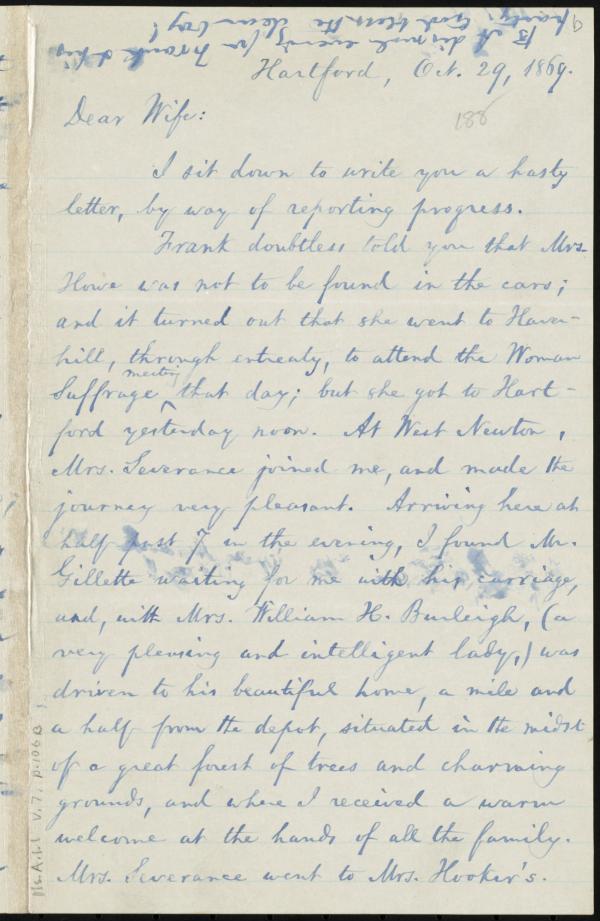 Hartford, Oct. 29, 1869.
188
Dear Wife:
I sit down to write you a hasty
letter, by way of reporting progress.
Frank doubtless told you that Mrs.
Howe was not to be found in the cars;
and it turned out that she went to Haver-
hill, through entreaty, to attend the Woman
meeting
Suffrage ^ that day; but she got to Hart-
ford yesterday noon. At West Newton,
Mrs. Severance joined me, and made the
journey very pleasant. Arriving here at
half past 7 in the evening, I found Mr.
Gillette waiting for me with his carriage,
and, with Mrs. William H. Burleigh, (a
very pleasing and intelligent lady,) was
driven to his beautiful home, a mile and
a half from the depot, situated in the midst
of a great forest of trees and charming
grounds, and where I received a warm
welcome at the hands of all the family.
Mrs. Severance went to Mrs. Hooker's.
Ms.A.1.1 v.7, p.106B